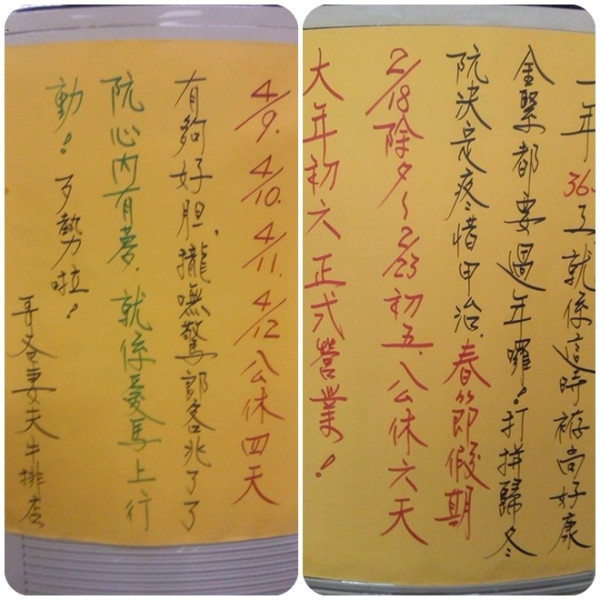 4/9. 4/10. 4/11. 4/12 公休四天
有夠好胆,攏嘸驚郎客兆了了
阮心內有夢,就係愛馬上行
動!歹勢啦!
妻夫牛排店
一年365工,就係這時袸尚好康
金緊都要過年囉!打拼歸冬
阮決定疼惜甲治,春節假期
2/18除夕~2/23初五,公休六天
大年初六正式營業!